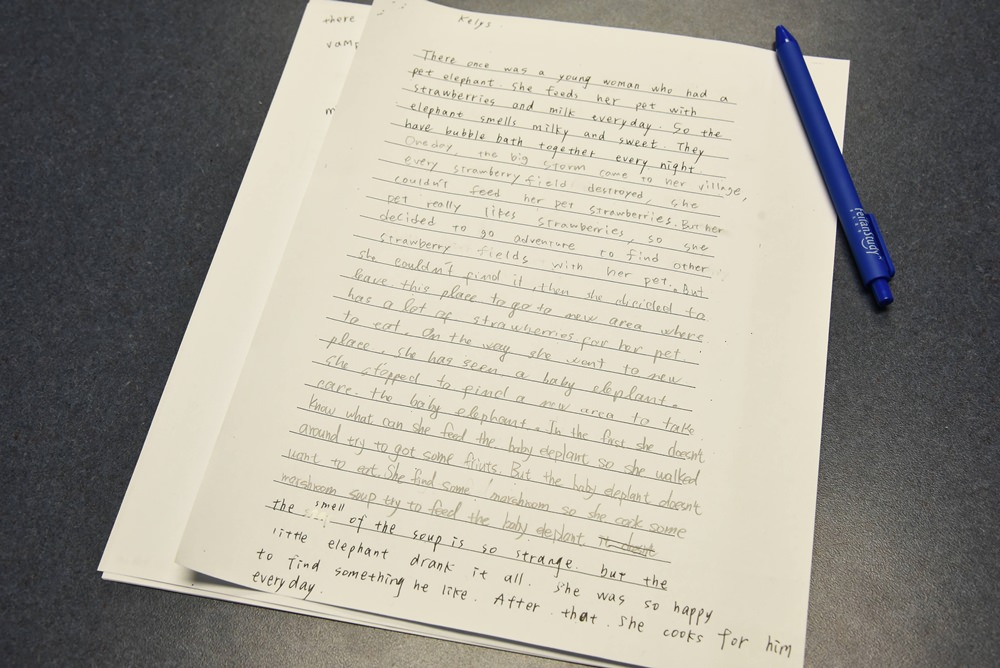 there
vamp
m
Kelys.
There once was a young woman who had a
pet elephant. She feeds her pet with
strawberries and milk everyday. So the
elephant smells milky and sweet. They
have bubble bath together every night.
One day, the big storm come to her village,
every strawberry field destroyed, she
couldn't feed her pet strawberries. But her
pet really likes strawberries, so she
decided to go adventure to find other
strawberry fields with her pet. But
she couldn't find it, then she dicided to
leave this place to go to new area where
has a lot of strawberries for her pet
to eat. On the way she want to new
place, she has seen a baby eleplant.
She stopped to find a new area to take
care. the baby elephant. In the first she doesn't
know what can she feed the baby eleplant so she walked
around try to got some friuts. But the baby eleplant doesn't
want to eat. She find some marshroom so she cook some
marshroom soup try to feed the baby eleplant. it doesn't
the smell of the soup is so strange. but the
little elephant drank it all. She was so happy
to find something he like. After that. She cooks for him
everyday.
feiranstudy